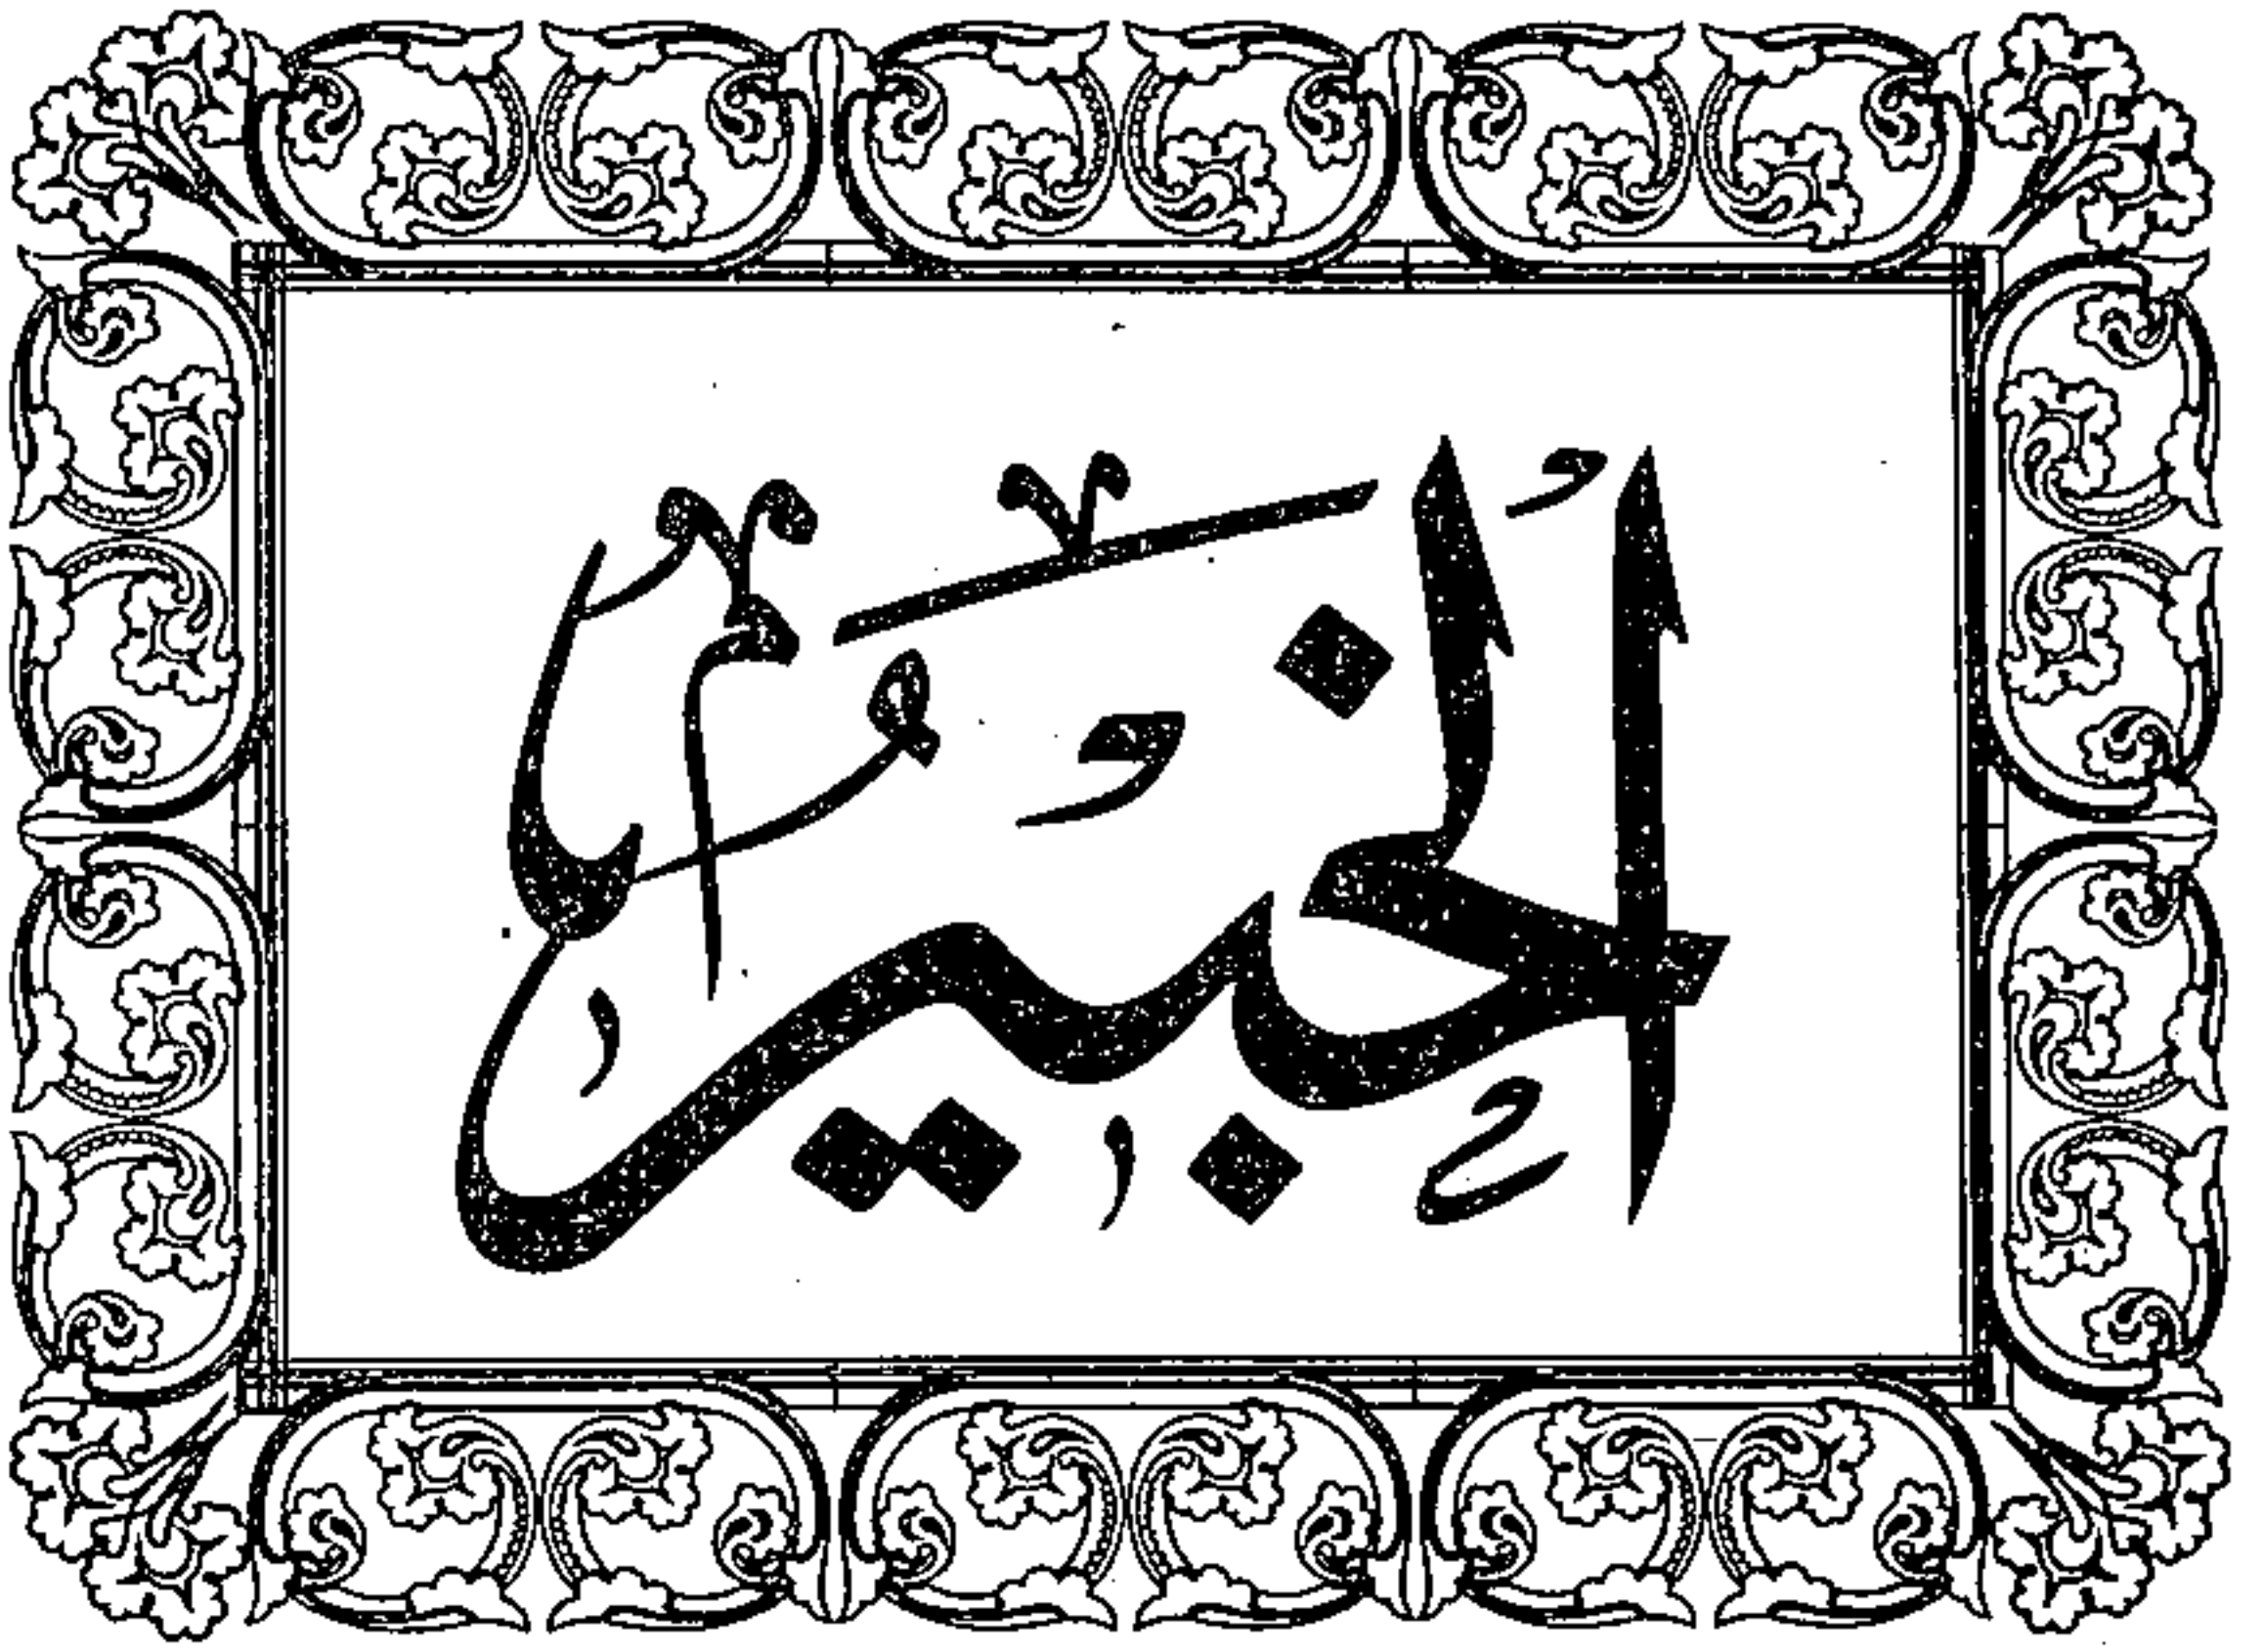 الخبير